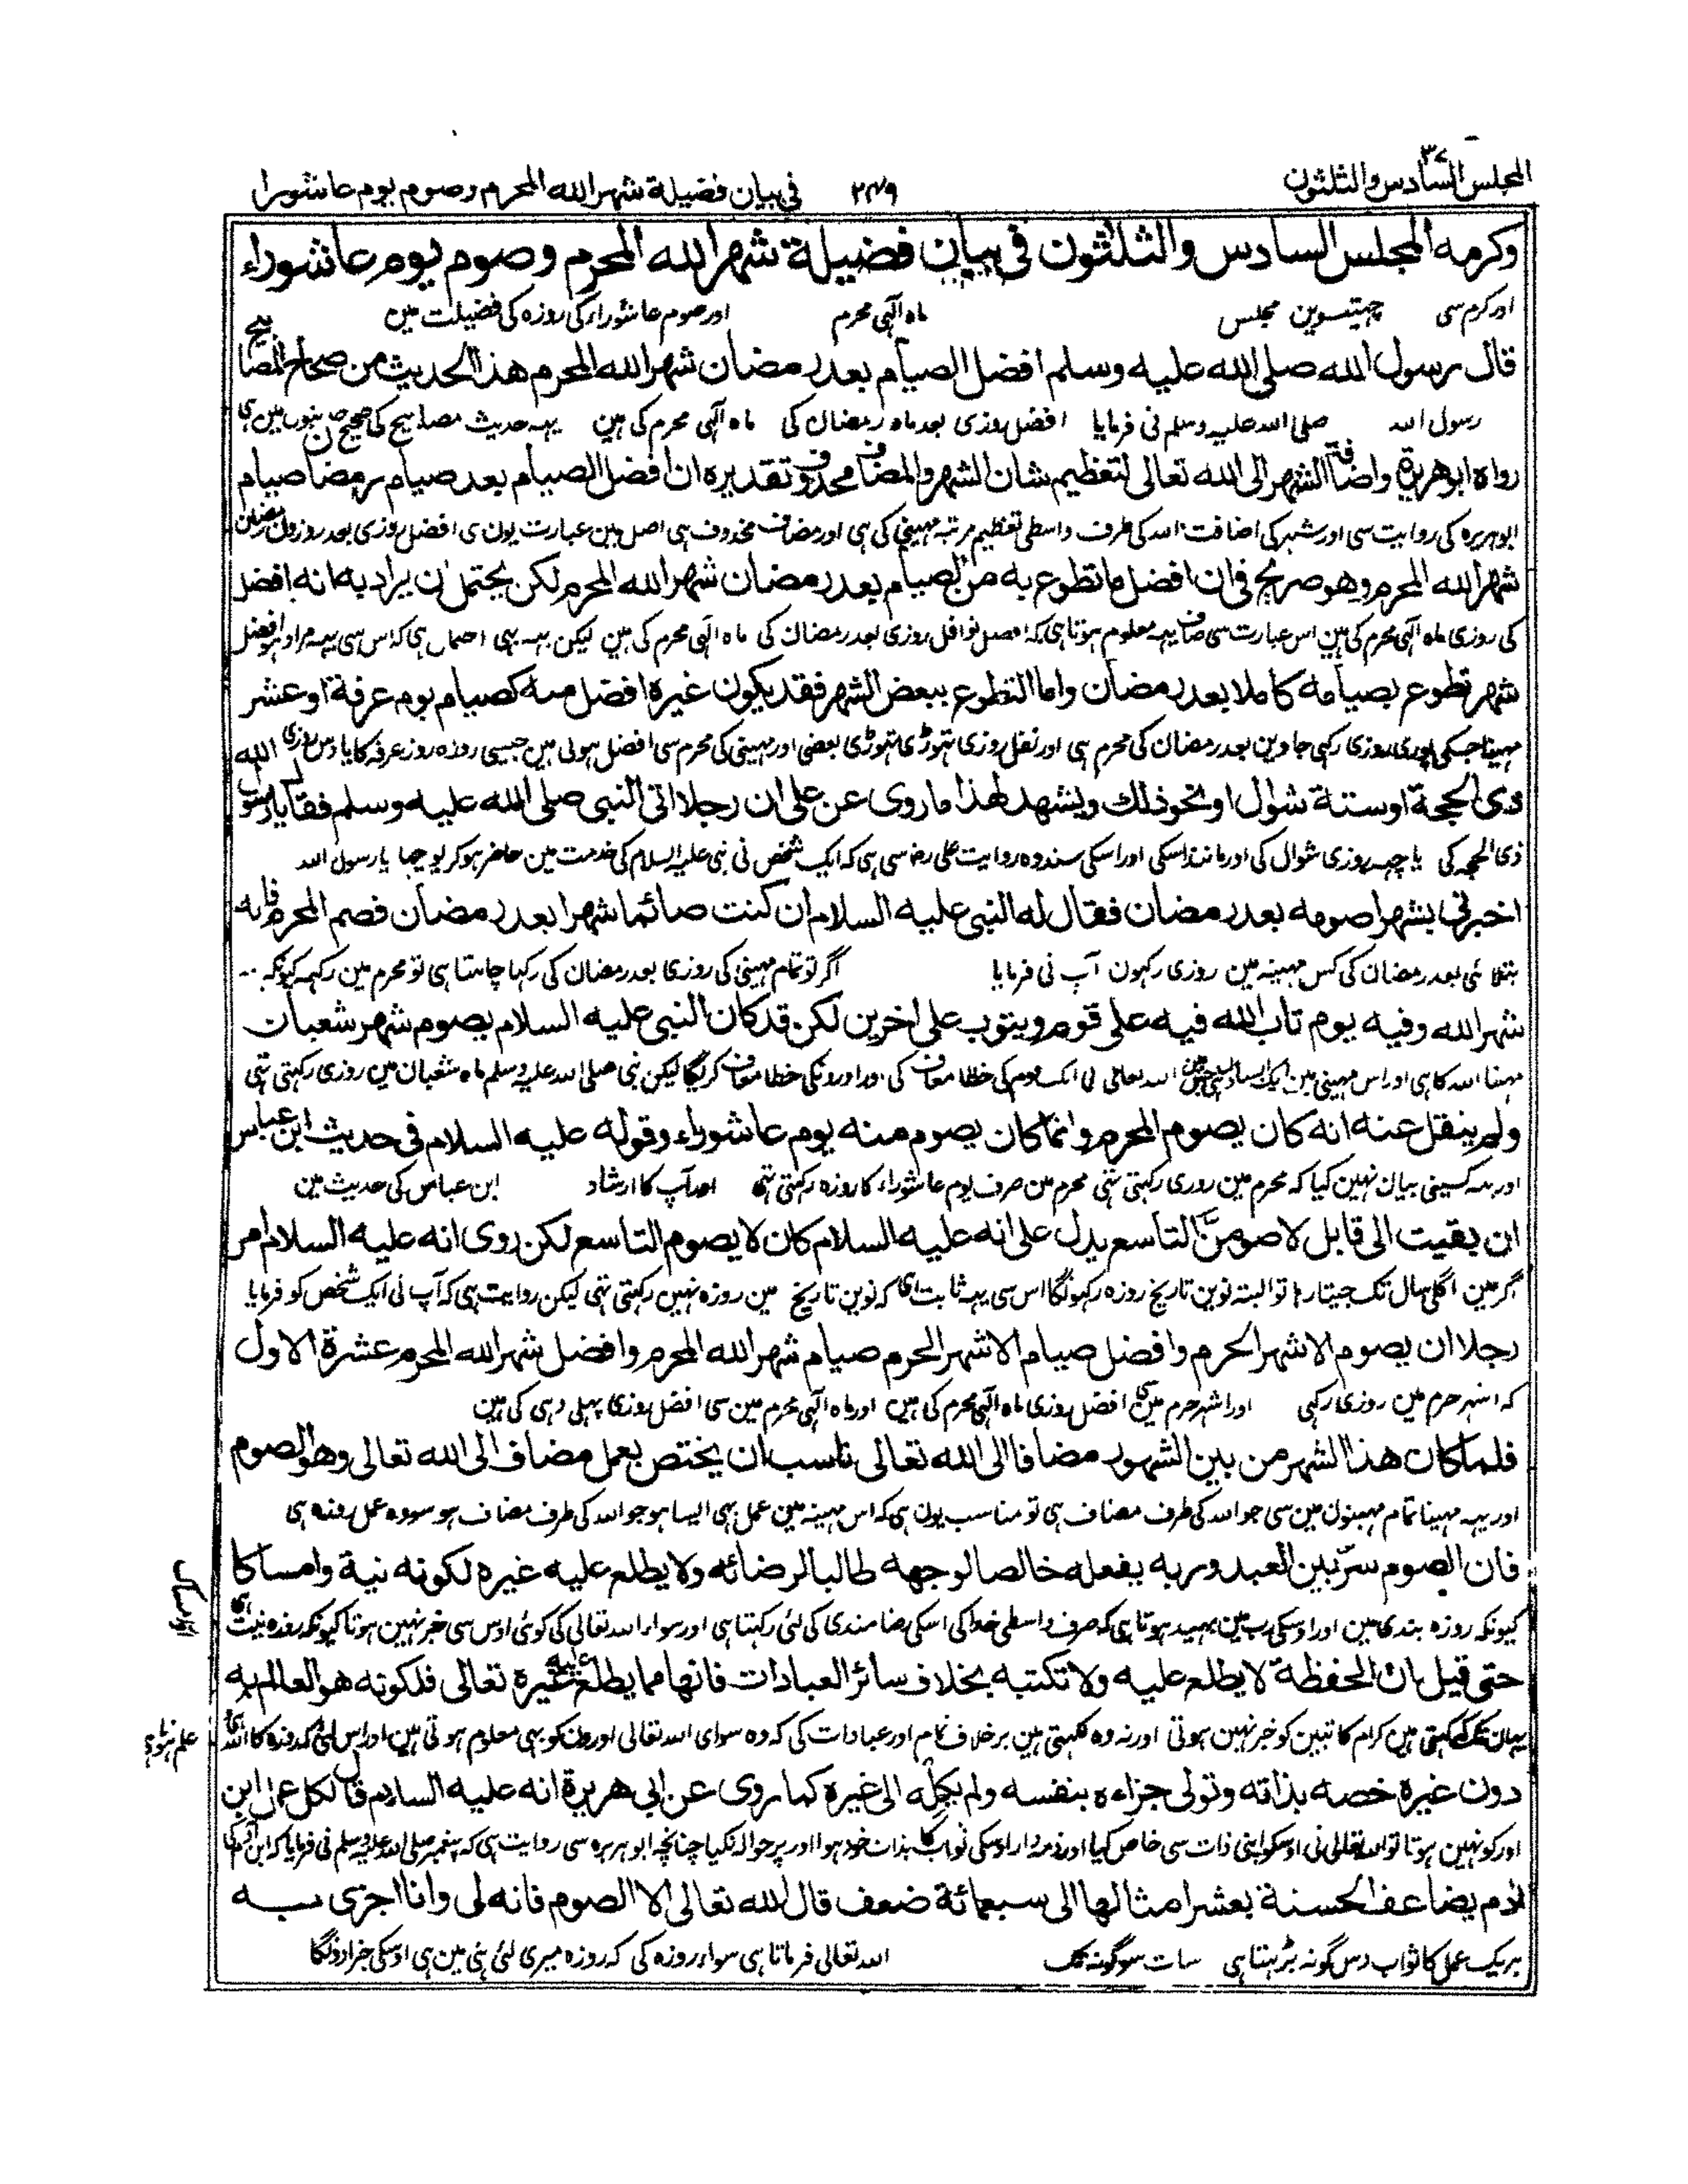 المجلس السادس والثلثون ٣٦ ٢٤٩ في بيان فضيلة شهر الله المحرم وصوم يوم عاشورا
وكرمه المجلس السادس والثلثون فى بيان فضيلة شهر الله المحرم وصوم يوم عاشوراء
اور کرم سی چہتیسوین مجلس ماہ الٰہی محرم اور صوم عاشوراء کی روزہ کی فضیلت مین
قال رسول الله صلى الله عليه وسلم افضل الصيام بعد رمضان شهر الله المحرم هذا الحديث من صحاح المصابيح
رسول اللہ صلی اللہ علیہ وسلم نی فرمایا افضل روزی بعد ماہ رمضان کی ماہ الٰہی محرم کی ہین یہہ حدیث مصابیح کی صحیح حدیثون مین ہی
رواه ابو هريرة واضافة الشهر الى الله تعالى لتعظيم شان الشهر والمضاف محذوف وتقديره ان افضل الصيام بعد صيام رمضان صيام
ابوہریرہ کی روایت سی اور شہر کی اضافت اللہ کی طرف واسطی تعظیم مرتبہ مہینی کی ہی اور مضاف محذوف ہی اصل مین عبارت یون ہی افضل روزی بعد روزون رمضان
شهر الله المحرم وهو صريح فى ان افضل ما تطوع به من الصيام بعد رمضان شهر الله المحرم لكن يحتمل ان يراد به انه افضل
کی روزی ماہ الٰہی محرم کی ہین اس عبارت سی صاف یہہ معلوم ہوتا ہی کہ افضل نوافل روزی بعد رمضان کی ماہ الٰہی محرم کی ہین لیکن یہہ بہی احتمال ہی کہ اس سی یہہ مراد ہو افضل
شهر تطوع بصيامه كاملا بعد رمضان واما التطوع ببعض الشهر فقد يكون غيره افضل منه كصيام يوم عرفة او عشر
مہینا جسکی پوری روزی رکہی جاوین بعد رمضان کی محرم ہی اور نفل روزی تہوڑی تہوڑی بعضی اور مہینی کی محرم سی افضل ہوتی ہین جیسی روزہ روز عرفہ کا یا دس روزی
ذى الحجة او ستة شوال او نحو ذلك ويشهد لهذا ما روى عن على ان رجلا اتى النبى صلى الله عليه وسلم فقال يا رسول الله
ذی الحجہ کی یا چہہ روزی شوال کی اور مانند اسکی اور اسکی سند وہ روایت علی رضہ سی ہی کہ ایک شخص نی نبی علیہ السلام کی خدمت مین حاضر ہو کر پوچہا یا رسول اللہ
اخبرنى بشهر اصومه بعد رمضان فقال له النبى عليه السلام ان كنت صائما شهرا بعد رمضان فصم المحرم فانه
بتلائی بعد رمضان کی کس مہینہ مین روزی رکہون آپ نی فرمایا اگر تو تمام مہینی کی روزی بعد رمضان کی رکہا چاہتا ہی تو محرم مین رکہہ کیونکہ
شهر الله وفيه يوم تاب الله فيه على قوم ويتوب على اخرين لكن قد كان النبى عليه السلام يصوم شهر شعبان
مہینا اللہ کا ہی اور اس مہینی مین ایک ایسا دن ہی جسمین اللہ تعالی نی ایک قوم کی خطا معاف کی اور اورونکی خطا معاف کریگا لیکن نبی صلی اللہ علیہ وسلم ماہ شعبان مین روزی رکہتی تہی
ولم ينقل عنه انه كان يصوم المحرم وانما كان يصوم منه يوم عاشوراء وقوله عليه السلام فى حديث ابن عباس
اور یہہ کسینی بیان نہین کیا کہ محرم مین روزی رکہتی تہی محرم مین صرف یوم عاشوراء کا روزہ رکہتی تہی اور آپ کا ارشاد ابن عباس کی حدیث مین
ان بقيت الى قابل لاصومنّ التاسع يدل على انه عليه السلام كان لا يصوم التاسع لكن روى انه عليه السلام امر
اگر مین اگلی سال تک جیتا رہا تو البتہ نوین تاریخ روزہ رکہونگا اس سی یہہ ثابت ہی کہ نوین تاریخ مین روزہ نہین رکہتی تہی لیکن روایت ہی کہ آپ نی ایک شخص کو فرمایا
رجلا ان يصوم الاشهر الحرم وافضل صيام الاشهر الحرم صيام شهر الله المحرم وافضل شهر الله المحرم عشرة الاول
کہ اشہر حرم مین روزی رکہی اور اشہر حرم مین سی افضل روزی ماہ الٰہی محرم کی ہین اور ماہ الٰہی محرم مین سی افضل روزی پہلی دہی کی ہین
فلما كان هذا الشهر من بين الشهور مضافا الى الله تعالى ناسب ان يختص بعمل مضاف الى الله تعالى وهو الصوم
اور یہہ مہینا تمام مہینون مین سی جو اللہ کی طرف مضاف ہی تو مناسب یون ہی کہ اس مہینہ مین عمل بہی ایسا ہو جو اللہ کی طرف مضاف ہو سو وہ عمل روزہ ہی
فان الصوم سرّ بين العبد وربه يفعله خالصا لوجهه طالبا لرضائه ولا يطلع عليه غيره لكونه نية وامساكا
کیونکہ روزہ بندی مین اور اوسکی رب مین بہید ہوتا ہی کہ صرف واسطی خدا کی اسکی رضا مندی کی لئی رکہتا ہی اور سواء اللہ تعالی کی کوئی اوس سی خبر نہین ہوتا کیونکہ روزہ نیت ہی
اور امساک
حتى قيل ان الحفظة لا يطلع عليه ولا تكتبه بخلاف سائر العبادات فانها مما يطلع عليه غيره تعالى فلكونه هو العالم به
یہان تک کہ کہتی ہین کرام کاتبین کو خبر نہین ہوتی اور نہ وہ لکہتی ہین برخلاف تمام اور عبادات کی کہ وہ سوای اللہ تعالی اورون کو بہی معلوم ہوتی ہین اور اس لئی کہ روزہ کا اللہ ہی
دون غيره خصه بذاته وتولى جزاءه بنفسه ولم يكله الى غيره كما روى عن ابى هريرة انه عليه السلام قال كل عمل ابن
اور کو نہین ہوتا تو اللہ تعالی نی اوسکو اپنی ذات سی خاص کیا اور ذمہ دار اوسکی ثواب کا بذات خود ہوا اور پر حوالہ نکیا چنانچہ ابوہریرہ سی روایت ہی کہ پیغمبر صلی اللہ علیہ وسلم نی فرمایا کہ ابن آدم کی
ادم يضاعف الحسنة بعشر امثالها الى سبعمائة ضعف قال الله تعالى الا الصوم فانه لى وانا اجزى به
ہریک عمل کا ثواب دس گونہ بڑہتا ہی سات سو گونہ تک اللہ تعالی فرماتا ہی سواء روزہ کی کہ روزہ میری لئی ہی مین ہی اوسکی جزا دونگا